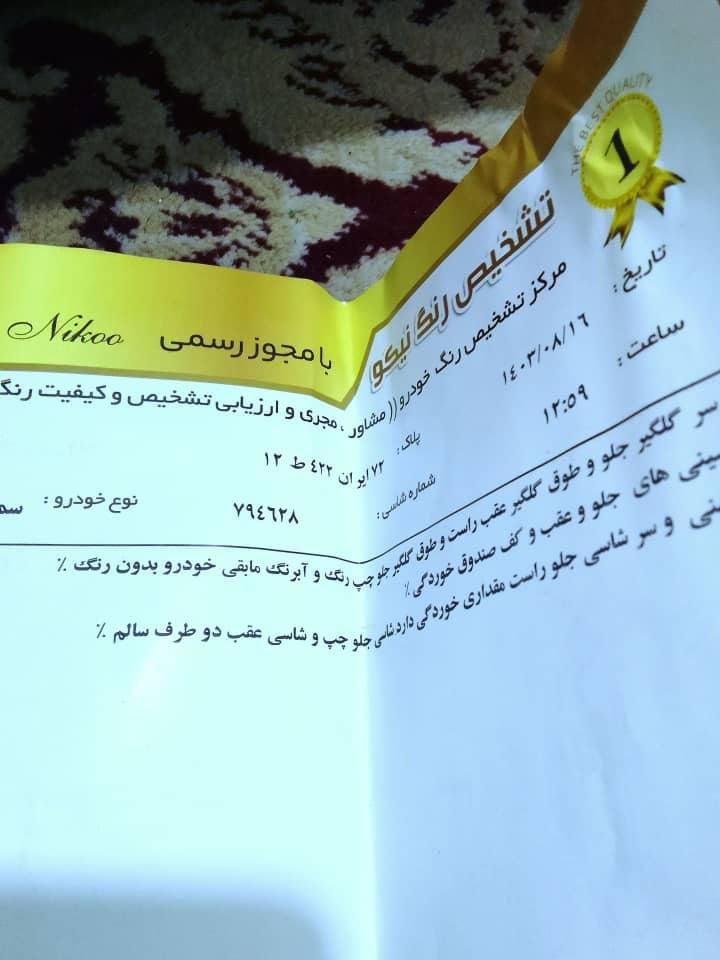 THE BEST QUALITY
1
تشخیص رنگ نیکو
با مجوز رسمی Nikoo
مرکز تشخیص رنگ خودرو (( مشاور ، مجری و ارزیابی تشخیص و کیفیت رنگ
تاریخ : ۱٤۰۳/۰۸/۱٦
پلاک : ۷۲ ایران ٤۲۲ ط ۱۲
ساعت : ۱۲:٥۹
شماره شاسی : ۷۹٤٦۲۸
نوع خودرو :
سر گلگیر جلو و طوق گلگیر عقب راست و طوق گلگیر جلو چپ رنگ و آبرنگ مابقی خودرو بدون رنگ ٪
سینی های جلو و عقب و کف صندوق خوردگی ٪
و سر شاسی جلو راست مقداری خوردگی دارد شاسی جلو چپ و شاسی عقب دو طرف سالم ٪